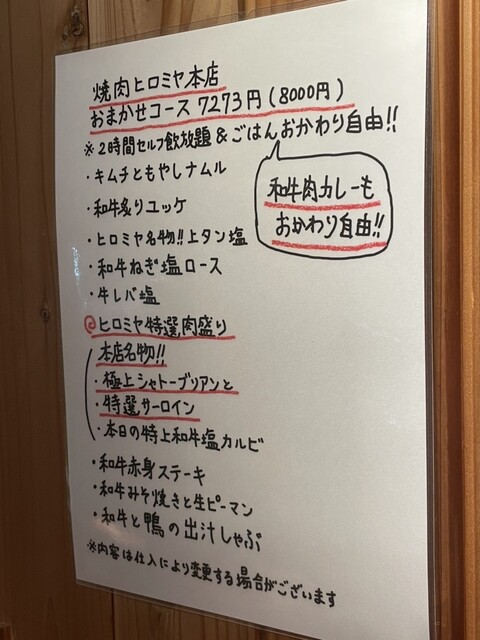 焼肉ヒロミヤ本店
おまかせコース 7273円(8000円)
※2時間セルフ飲放題&ごはんおかわり自由!!
和牛肉カレーも
おかわり自由!!
・キムチともやしナムル
・和牛炙りユッケ
・ヒロミヤ名物!!上タン塩
・和牛ねぎ塩ロース
・牛レバ塩
◎ヒロミヤ特選肉盛り
本店名物!!
・極上シャトーブリアンと
・特選サーロイン
・本日の特上和牛塩カルビ
・和牛赤身ステーキ
・和牛みそ焼きと生ピーマン
・和牛と鴨の出汁しゃぶ
※内容は仕入により変更する場合がございます